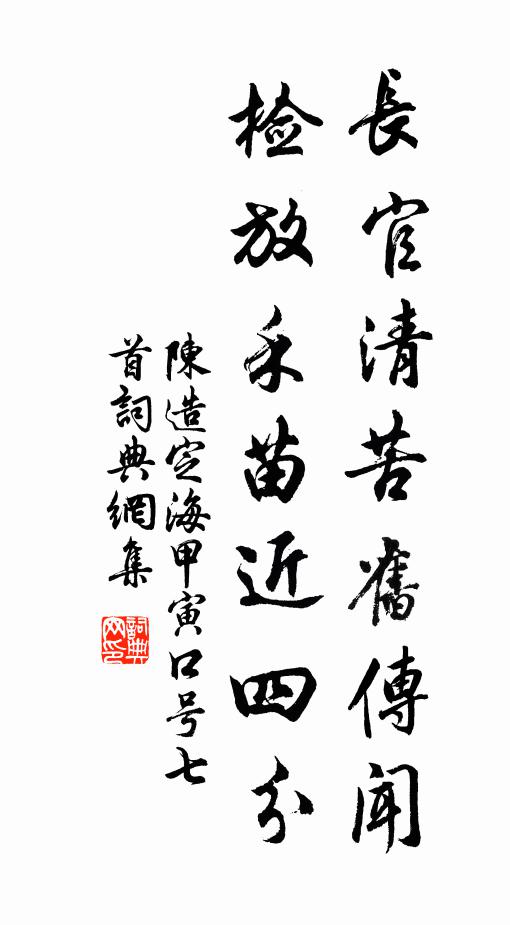 長官清苦舊傳聞
檢放禾苗近四分
陳造定海甲寅口号七
首詞典網集
詞典网印